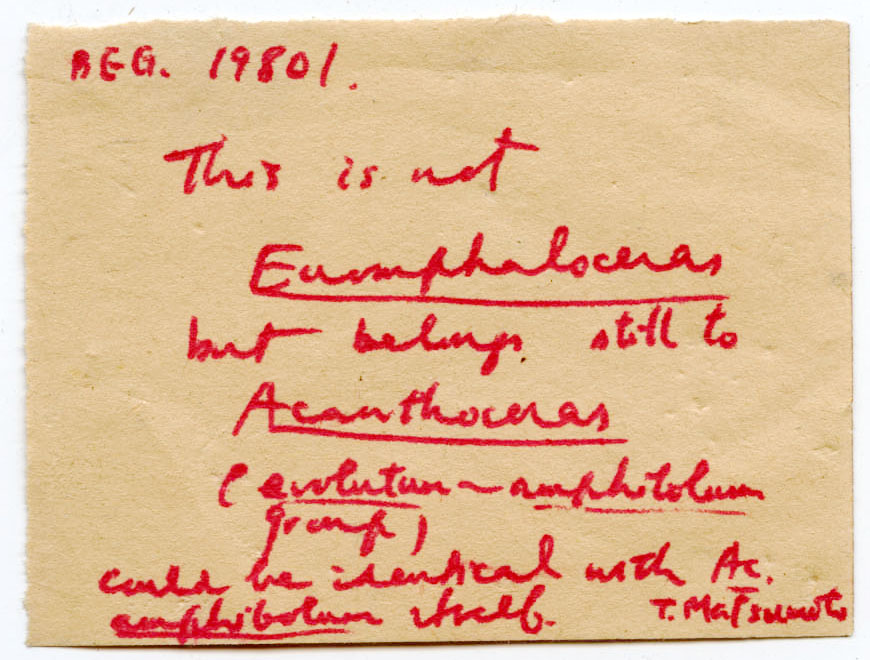 BEG. 19801.
This is not
Euomphaloceras
but belongs still to
Acanthoceras
(evolutum - amphibolum
group)
could be identical with Ac.
amphibolum itself.
T. Matsumoto